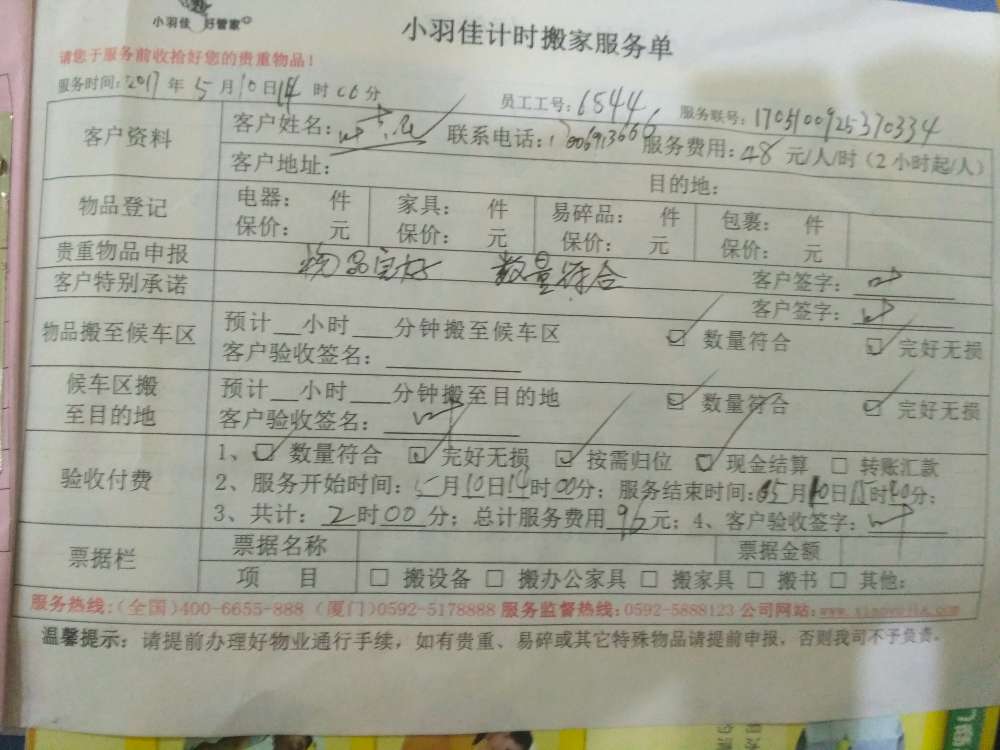 小羽佳 好管家
小羽佳计时搬家服务单
请您于服务前收拾好您的贵重物品！
服务时间：2017年5月10日14时00分 员工工号：6544 服务联号：1705100925370334
客户资料 客户姓名： 联系电话： 服务费用：48元/人/时（2小时起/人）
客户地址： 目的地：
物品登记 电器： 件 家具： 件 易碎品： 件 包裹： 件
保价： 元 保价： 元 保价： 元 保价： 元
贵重物品申报 物品完好 数量符合 客户签字：
客户特别承诺 客户签字：
物品搬至候车区 预计__小时___分钟搬至候车区 ☑ 数量符合 ☑ 完好无损
客户验收签名：
候车区搬至目的地 预计__小时___分钟搬至目的地 ☑ 数量符合 ☑ 完好无损
客户验收签名：
验收付费 1、☑ 数量符合 ☑ 完好无损 ☑ 按需归位 ☑ 现金结算 □ 转账汇款
2、服务开始时间：5月10日14时00分；服务结束时间：05月10日15时20分；
3、共计：2时00分；总计服务费用96元；4、客户验收签字：
票据栏 票据名称 票据金额
项 目 □ 搬设备 □ 搬办公家具 □ 搬家具 □ 搬书 □ 其他：
服务热线：（全国）400-6655-888（厦门）0592-5178888 服务监督热线：0592-5888123 公司网站：www.xiaoyujia.com
温馨提示：请提前办理好物业通行手续，如有贵重、易碎或其它特殊物品请提前申报，否则我司不予负责。